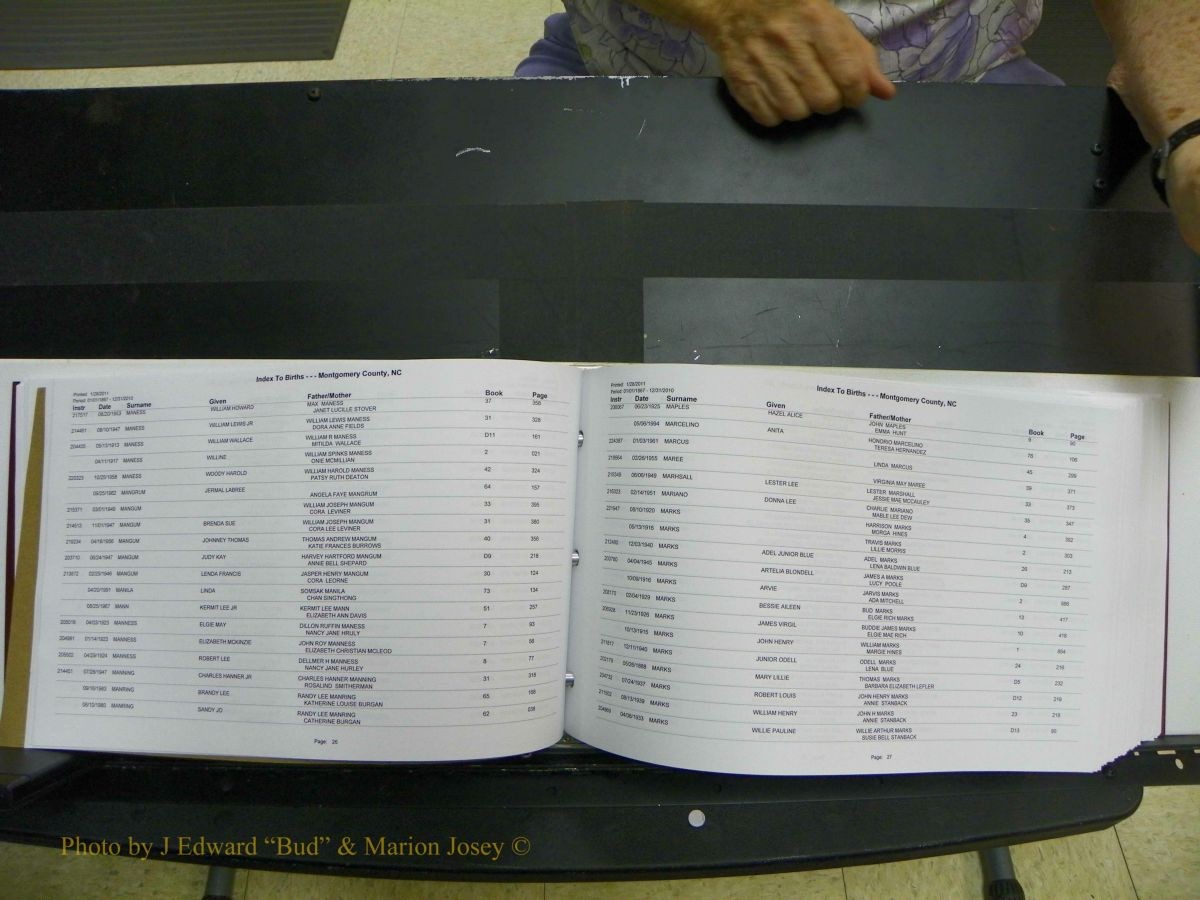 Index To Births - - - Montgomery County, NC
Printed: 1/28/2011
Period: 01/01/1867 - 12/31/2010
Instr Date Surname Given Father/Mother Book Page
217517 08/20/1953 MANESS WILLIAM HOWARD MAX MANESS 37 356
JANET LUCILLE STOVER
214461 08/10/1947 MANESS WILLIAM LEWIS JR WILLIAM LEWIS MANESS 31 328
DORA ANNE FIELDS
05/13/1913 MANESS WILLIAM WALLACE WILLIAM R MANESS D11 161
MITILDA WALLACE
04/11/1917 MANESS WILLINE WILLIAM SPINKS MANESS 2 021
ONIE MCMILLIAN
220323 10/25/1958 MANESS WOODY HAROLD WILLIAM HAROLD MANESS 42 324
PATSY RUTH DEATON
09/25/1982 MANGRUM JERMAL LABREE 64 157
ANGELA FAYE MANGRUM
215371 03/01/1949 MANGUM WILLIAM JOSEPH MANGUM 33 395
CORA LEVINER
214613 11/01/1947 MANGUM BRENDA SUE WILLIAM JOSEPH MANGUM 31 380
CORA LEE LEVINER
219234 04/18/1956 MANGUM JOHNNEY THOMAS THOMAS ANDREW MANGUM 40 356
KATIE FRANCES BURROWS
203710 06/24/1947 MANGUM JUDY KAY HARVEY HARTFORD MANGUM D9 218
ANNIE BELL SHEPARD
213672 02/25/1946 MANGUM LENDA FRANCIS JASPER HENRY MANGUM 30 124
CORA LEORNE
04/20/1991 MANILA LINDA SOMSAK MANILA 73 134
CHAN SINGTHONG
08/25/1967 MANN KERMIT LEE JR KERMIT LEE MANN 51 257
ELIZABETH ANN DAVIS
205018 04/03/1923 MANNESS ELGIE MAY DILLON RUFFIN MANESS 7 93
NANCY JANE HRULY
204981 01/14/1923 MANNESS ELIZABETH MCKINZIE JOHN ROY MANNESS 7 58
ELIZABETH CHRISTIAN MCLEOD
205502 04/29/1924 MANNESS ROBERT LEE DELLMER H MANNESS 8 77
NANCY JANE HURLEY
214451 07/28/1947 MANNING CHARLES HANNER JR CHARLES HANNER MANNING 31 318
ROSALIND SMITHERMAN
09/16/1983 MANRING BRANDY LEE RANDY LEE MANRING 65 168
KATHERINE LOUISE BURGAN
08/10/1980 MANRING SANDY JO RANDY LEE MANRING 62 038
CATHERINE BURGAN
Page: 26
Index To Births - - - Montgomery County, NC
Printed: 1/28/2011
Period: 01/01/1867 - 12/31/2010
Instr Date Surname Given Father/Mother Book Page
206067 06/23/1925 MAPLES HAZEL ALICE JOHN MAPLES 9 90
EMMA HUNT
05/06/1994 MARCELINO ANITA HONORIO MARCELINO 76 106
TERESA HERNANDEZ
224387 01/03/1961 MARCUS 45 299
LINDA MARCUS
218664 02/26/1955 MAREE 39 371
VIRGINIA MAY MAREE
215349 06/06/1949 MARHSALL LESTER LEE LESTER MARSHALL 33 373
JESSIE MAE MCCAULEY
216323 02/14/1951 MARIANO DONNA LEE CHARLIE MARIANO 35 347
MABLE LEE DEW
221947 08/10/1920 MARKS HARRISON MARKS 4 352
MORGA HINES
05/13/1916 MARKS TRAVIS MARKS 2 303
LILLIE MORRIS
212460 12/03/1940 MARKS ADEL JUNIOR BLUE ADEL MARKS 26 213
LENA BALDWIN BLUE
203780 04/04/1945 MARKS ARTELIA BLONDELL JAMES A MARKS D9 287
LUCY POOLE
10/09/1916 MARKS ARVIE JARVIS MARKS 2 886
ADA MITCHELL
208170 02/04/1929 MARKS BESSIE AILEEN BUD MARKS 12 417
ELGIE RICH MARKS
11/23/1926 MARKS JAMES VIRGIL BUDDIE JAMES MARKS 10 418
ELGIE MAE RICH
10/13/1915 MARKS JOHN HENRY WILLIAM MARKS 1
MARGIE HINES
211817 12/11/1940 MARKS JUNIOR ODELL ODELL MARKS 24 216
LENA BLUE
202179 05/26/1888 MARKS MARY LILLIE THOMAS MARKS D5 232
BARBARA ELIZABETH LEFLER
204732 07/24/1937 MARKS ROBERT LOUIS JOHN HENRY MARKS D12 219
ANNIE STANBACK
211502 08/13/1939 MARKS WILLIAM HENRY JOHN H MARKS 23 218
ANNIE STANBACK
204869 04/06/1933 MARKS WILLIE PAULINE WILLIE ARTHUR MARKS D13 90
SUSIE BELL STANBACK
Page: 27
Photo by J Edward “Bud” & Marion Josey ©